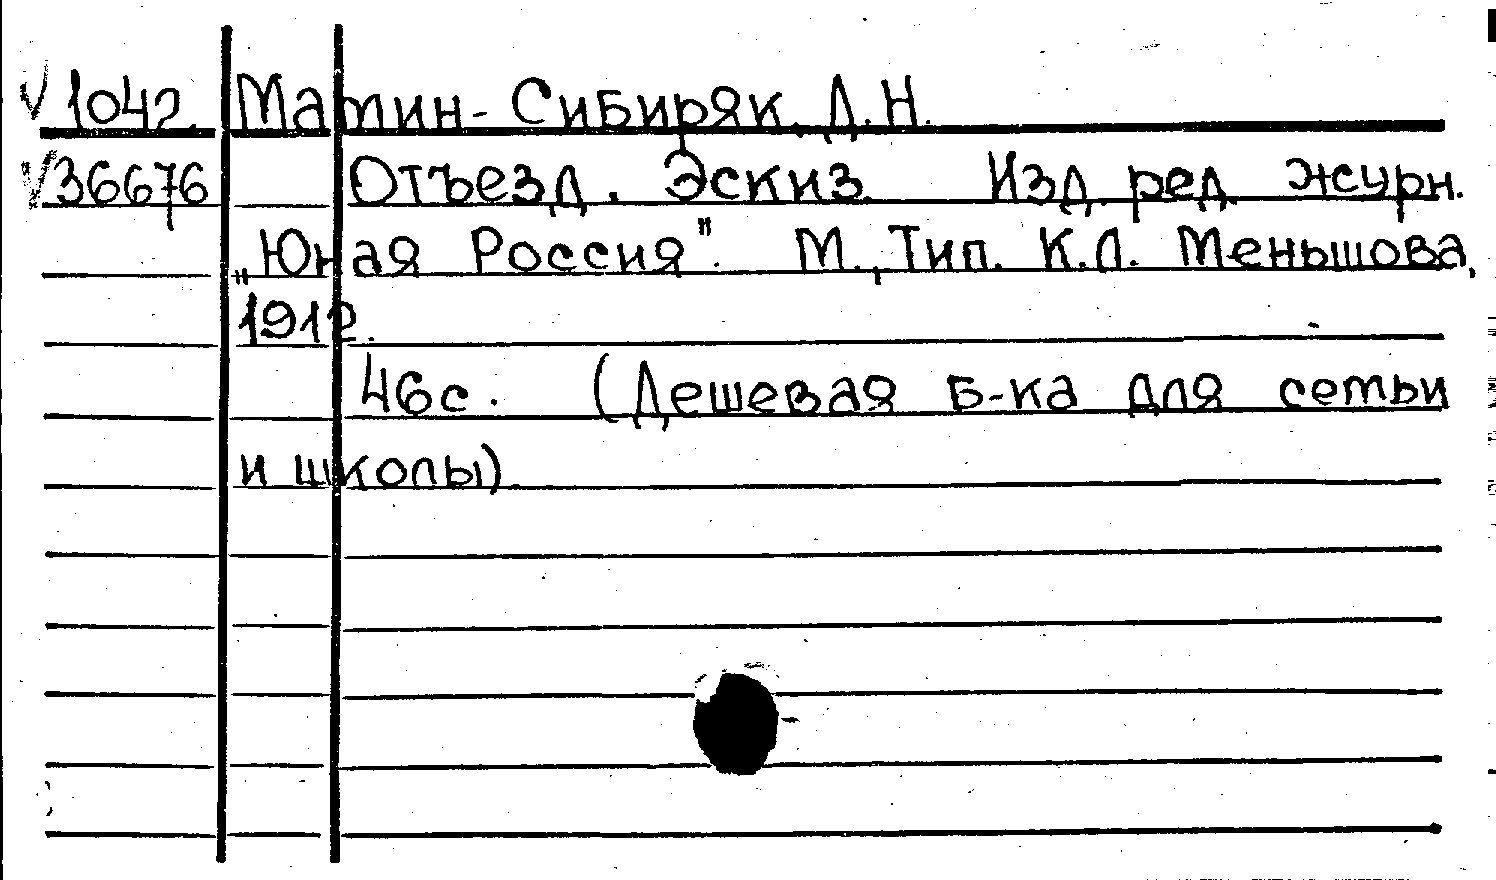 1042. Матин-Сибиряк, Д.Н.
36676 Отъезд. Эскиз. Изд. ред. журн.
„Юная Россия". М., Тип. К.Л. Меньшова,
1912.
46с. (Дешевая Б-ка для сетьи
и школы).